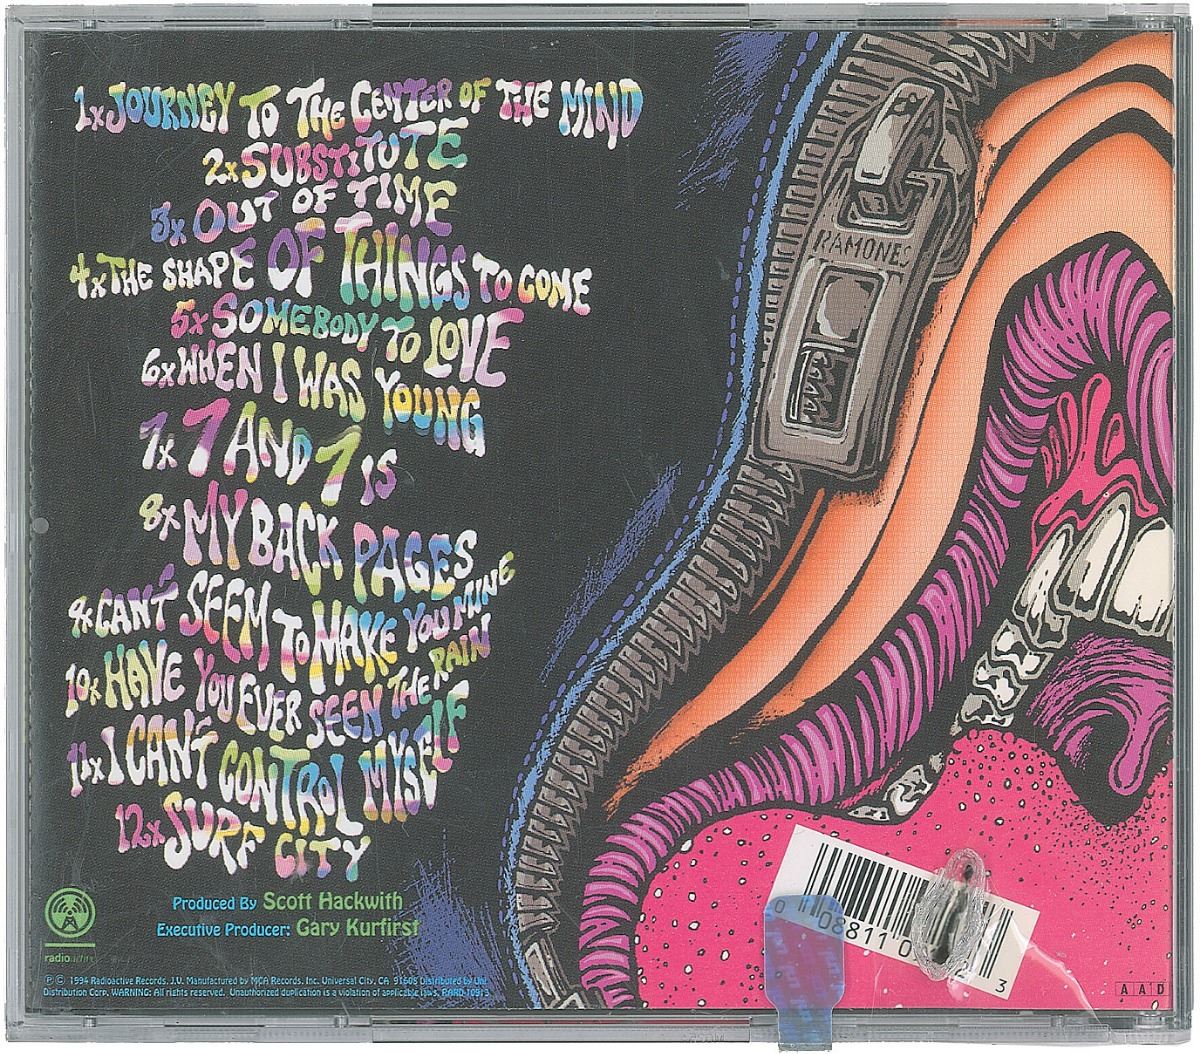 1x JOURNEY TO THE CENTER OF THE MIND
2x SUBSTITUTE
3x OUT OF TIME
4x THE SHAPE OF THINGS TO COME
5x SOMEBODY TO LOVE
6x WHEN I WAS YOUNG
7x 7 AND 7 IS
8x MY BACK PAGES
9x CAN'T SEEM TO MAKE YOU MINE
10x HAVE YOU EVER SEEN THE RAIN
11x I CAN'T CONTROL MYSELF
12x SURF CITY
RAMONES
Produced By Scott Hackwith
Executive Producer: Gary Kurfirst
radio
℗ © 1994 Radioactive Records, J.V. Manufactured by MCA Records, Inc. Universal City, CA 91608 Distributed by Uni
Distribution Corp. WARNING: All rights reserved. Unauthorized duplication is a violation of applicable laws. RARD-10913
0 08811 0 2 3
A A D